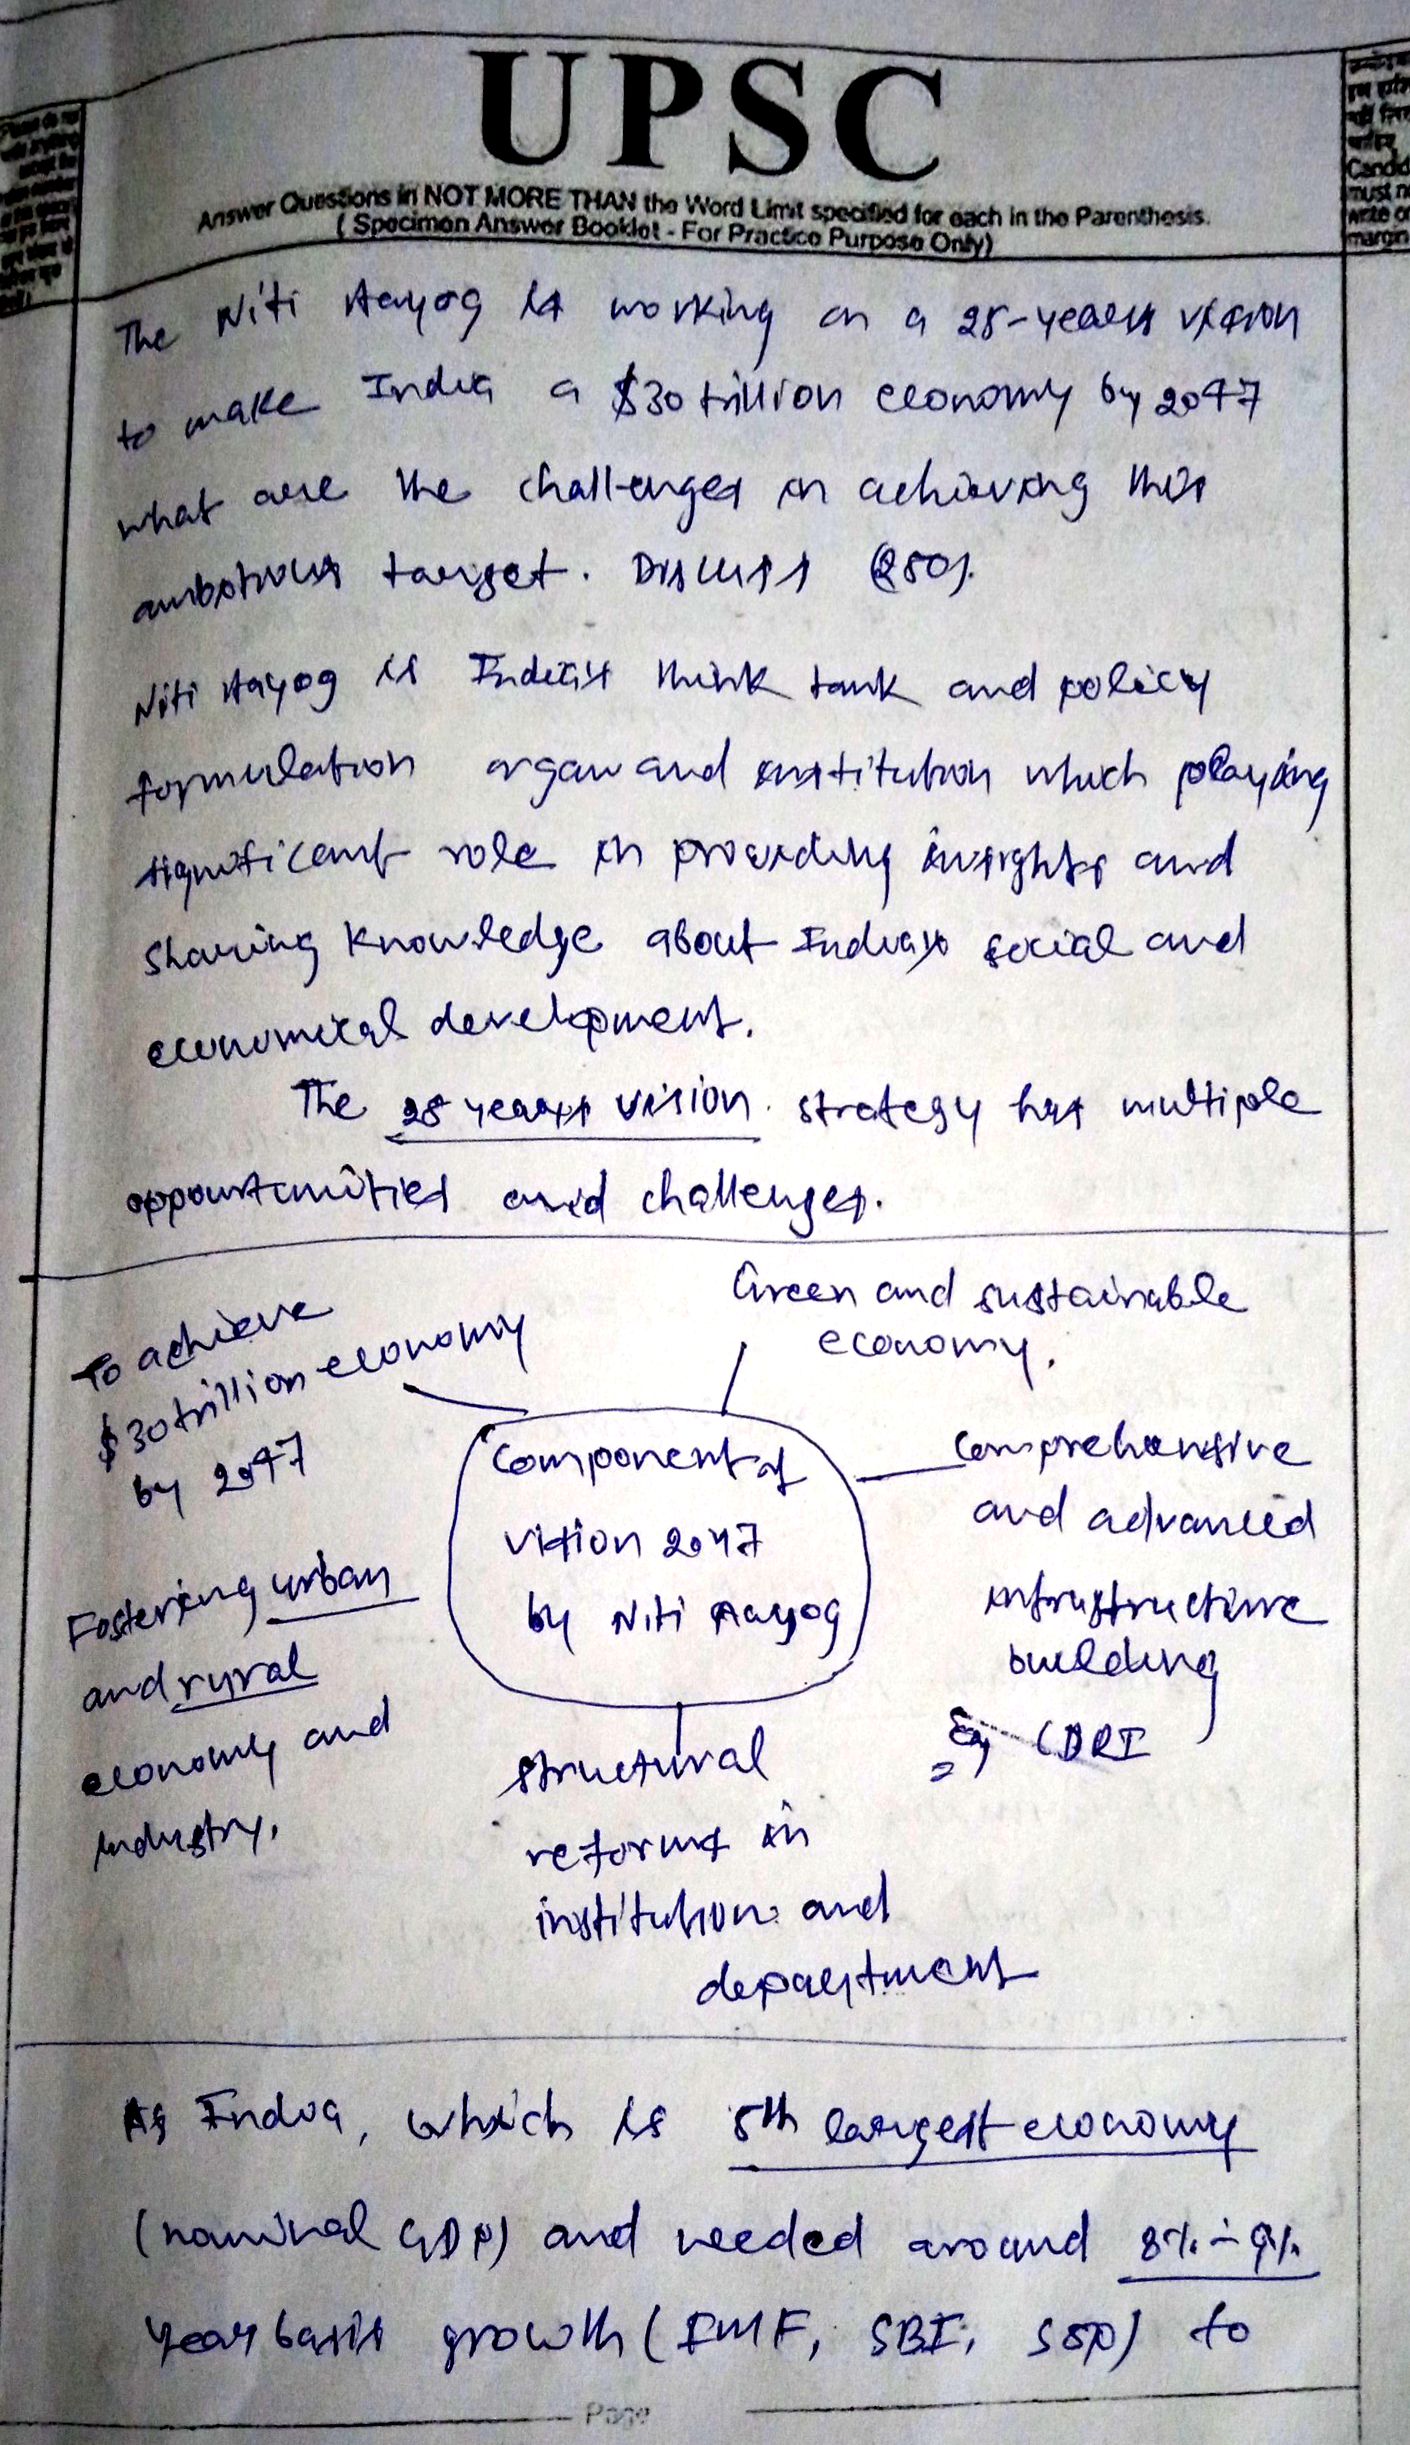 UPSC
Answer Questions in NOT MORE THAN the Word Limit specified for each in the Parenthesis.
( Specimen Answer Booklet - For Practice Purpose Only)
Candid
must n
write o
margin
The Niti Aayog is working on a 25-years vision
to make India a $30 trillion economy by 2047
what are the challenges in achieving this
ambitious target. Discuss (250).
Niti Aayog is India's think tank and policy
formulation organ and institution which playing
significant role in providing insights and
sharing knowledge about India's social and
economical development.
The 25 years vision strategy has multiple
opportunities and challenges.
To achieve
$30 trillion economy
by 2047
Green and sustainable
economy.
Component of
vision 2047
by Niti Aayog
Comprehensive
and advanced
infrastructure
building
Eg CDRI
Fostering urban
and rural
economy and
industry.
structural
reforms in
institution and
department
As India, which is 5th largest economy
(nominal GDP) and needed around 8% - 9%
year basis growth (IMF, SBI, S&P) to
Page